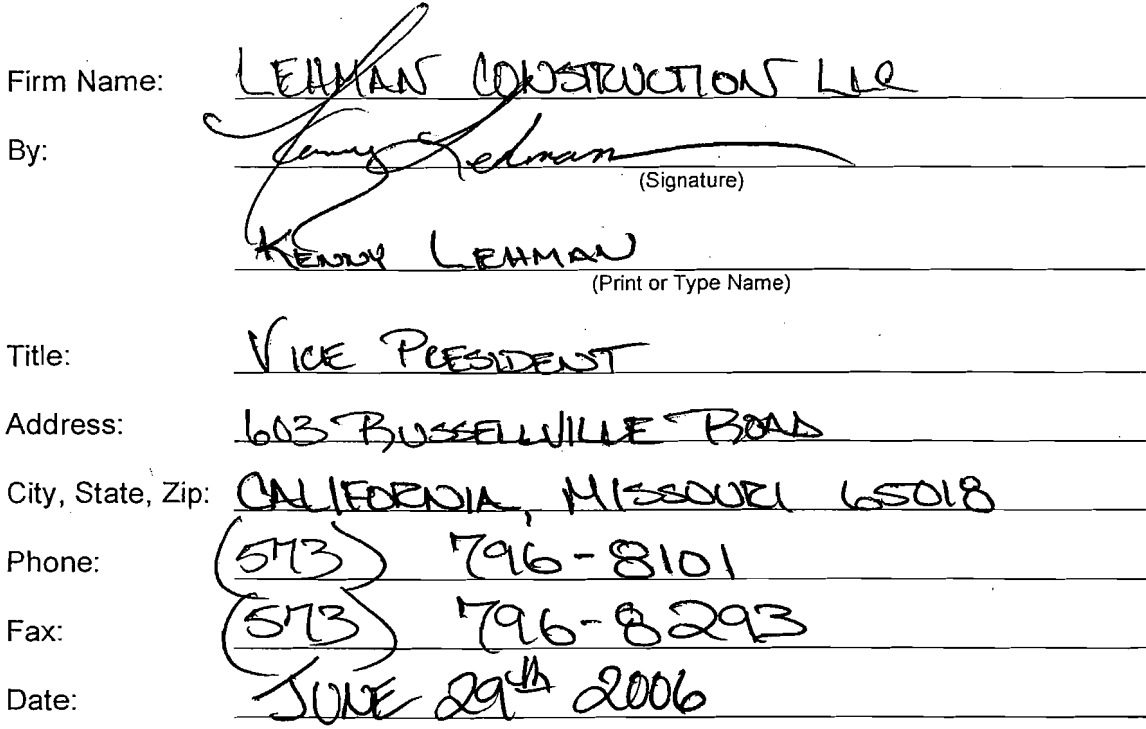 Firm Name: LEHMAN CONSTRUCTION LLC
By: Kenny Lehman
(Signature)
KENNY LEHMAN
(Print or Type Name)
Title: VICE PRESIDENT
Address: 603 RUSSELLVILLE ROAD
City, State, Zip: CALIFORNIA, MISSOURI 65018
Phone: (573) 796-8101
Fax: (573) 796-8293
Date: JUNE 29th 2006